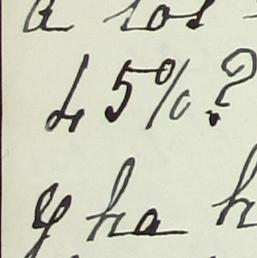 a los
45%?
y ha h